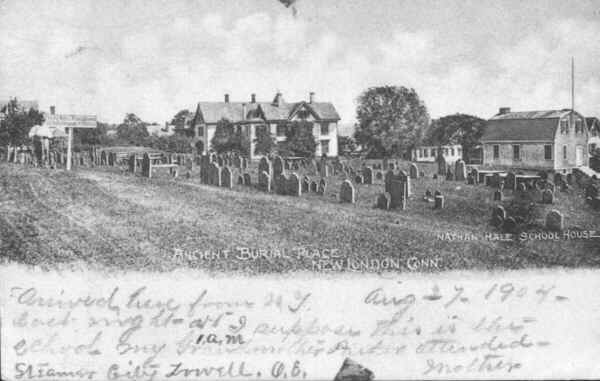 NATHAN HALE SCHOOL HOUSE
ANCIENT BURIAL PLACE
NEW LONDON, CONN.
Arrived here from N.Y. Aug 27, 1904 -
last night - at 1 a.m. I suppose this is the
School my Grandmother attended -
Steamer City Lowell. Mother